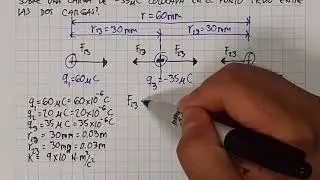 SOBRE UNA CARGA DE -35μC COLOCADA EN EL PUNTO MEDIO ENTRE
LAS DOS CARGAS?
r = 60mm
r13 = 30 mm
r23 = 30mm
F13
F23
F23
F13
q1 = 60μC
q3 = -35μC
q1 = 60μC = 60x10⁻⁶C
q2 = 20μC = 20x10⁻⁶C
q3 = 35μC = 35x10⁻⁶C
r13 = 30mm = 0.03m
r23 = 30mm = 0.03m
K = 9x10
F13